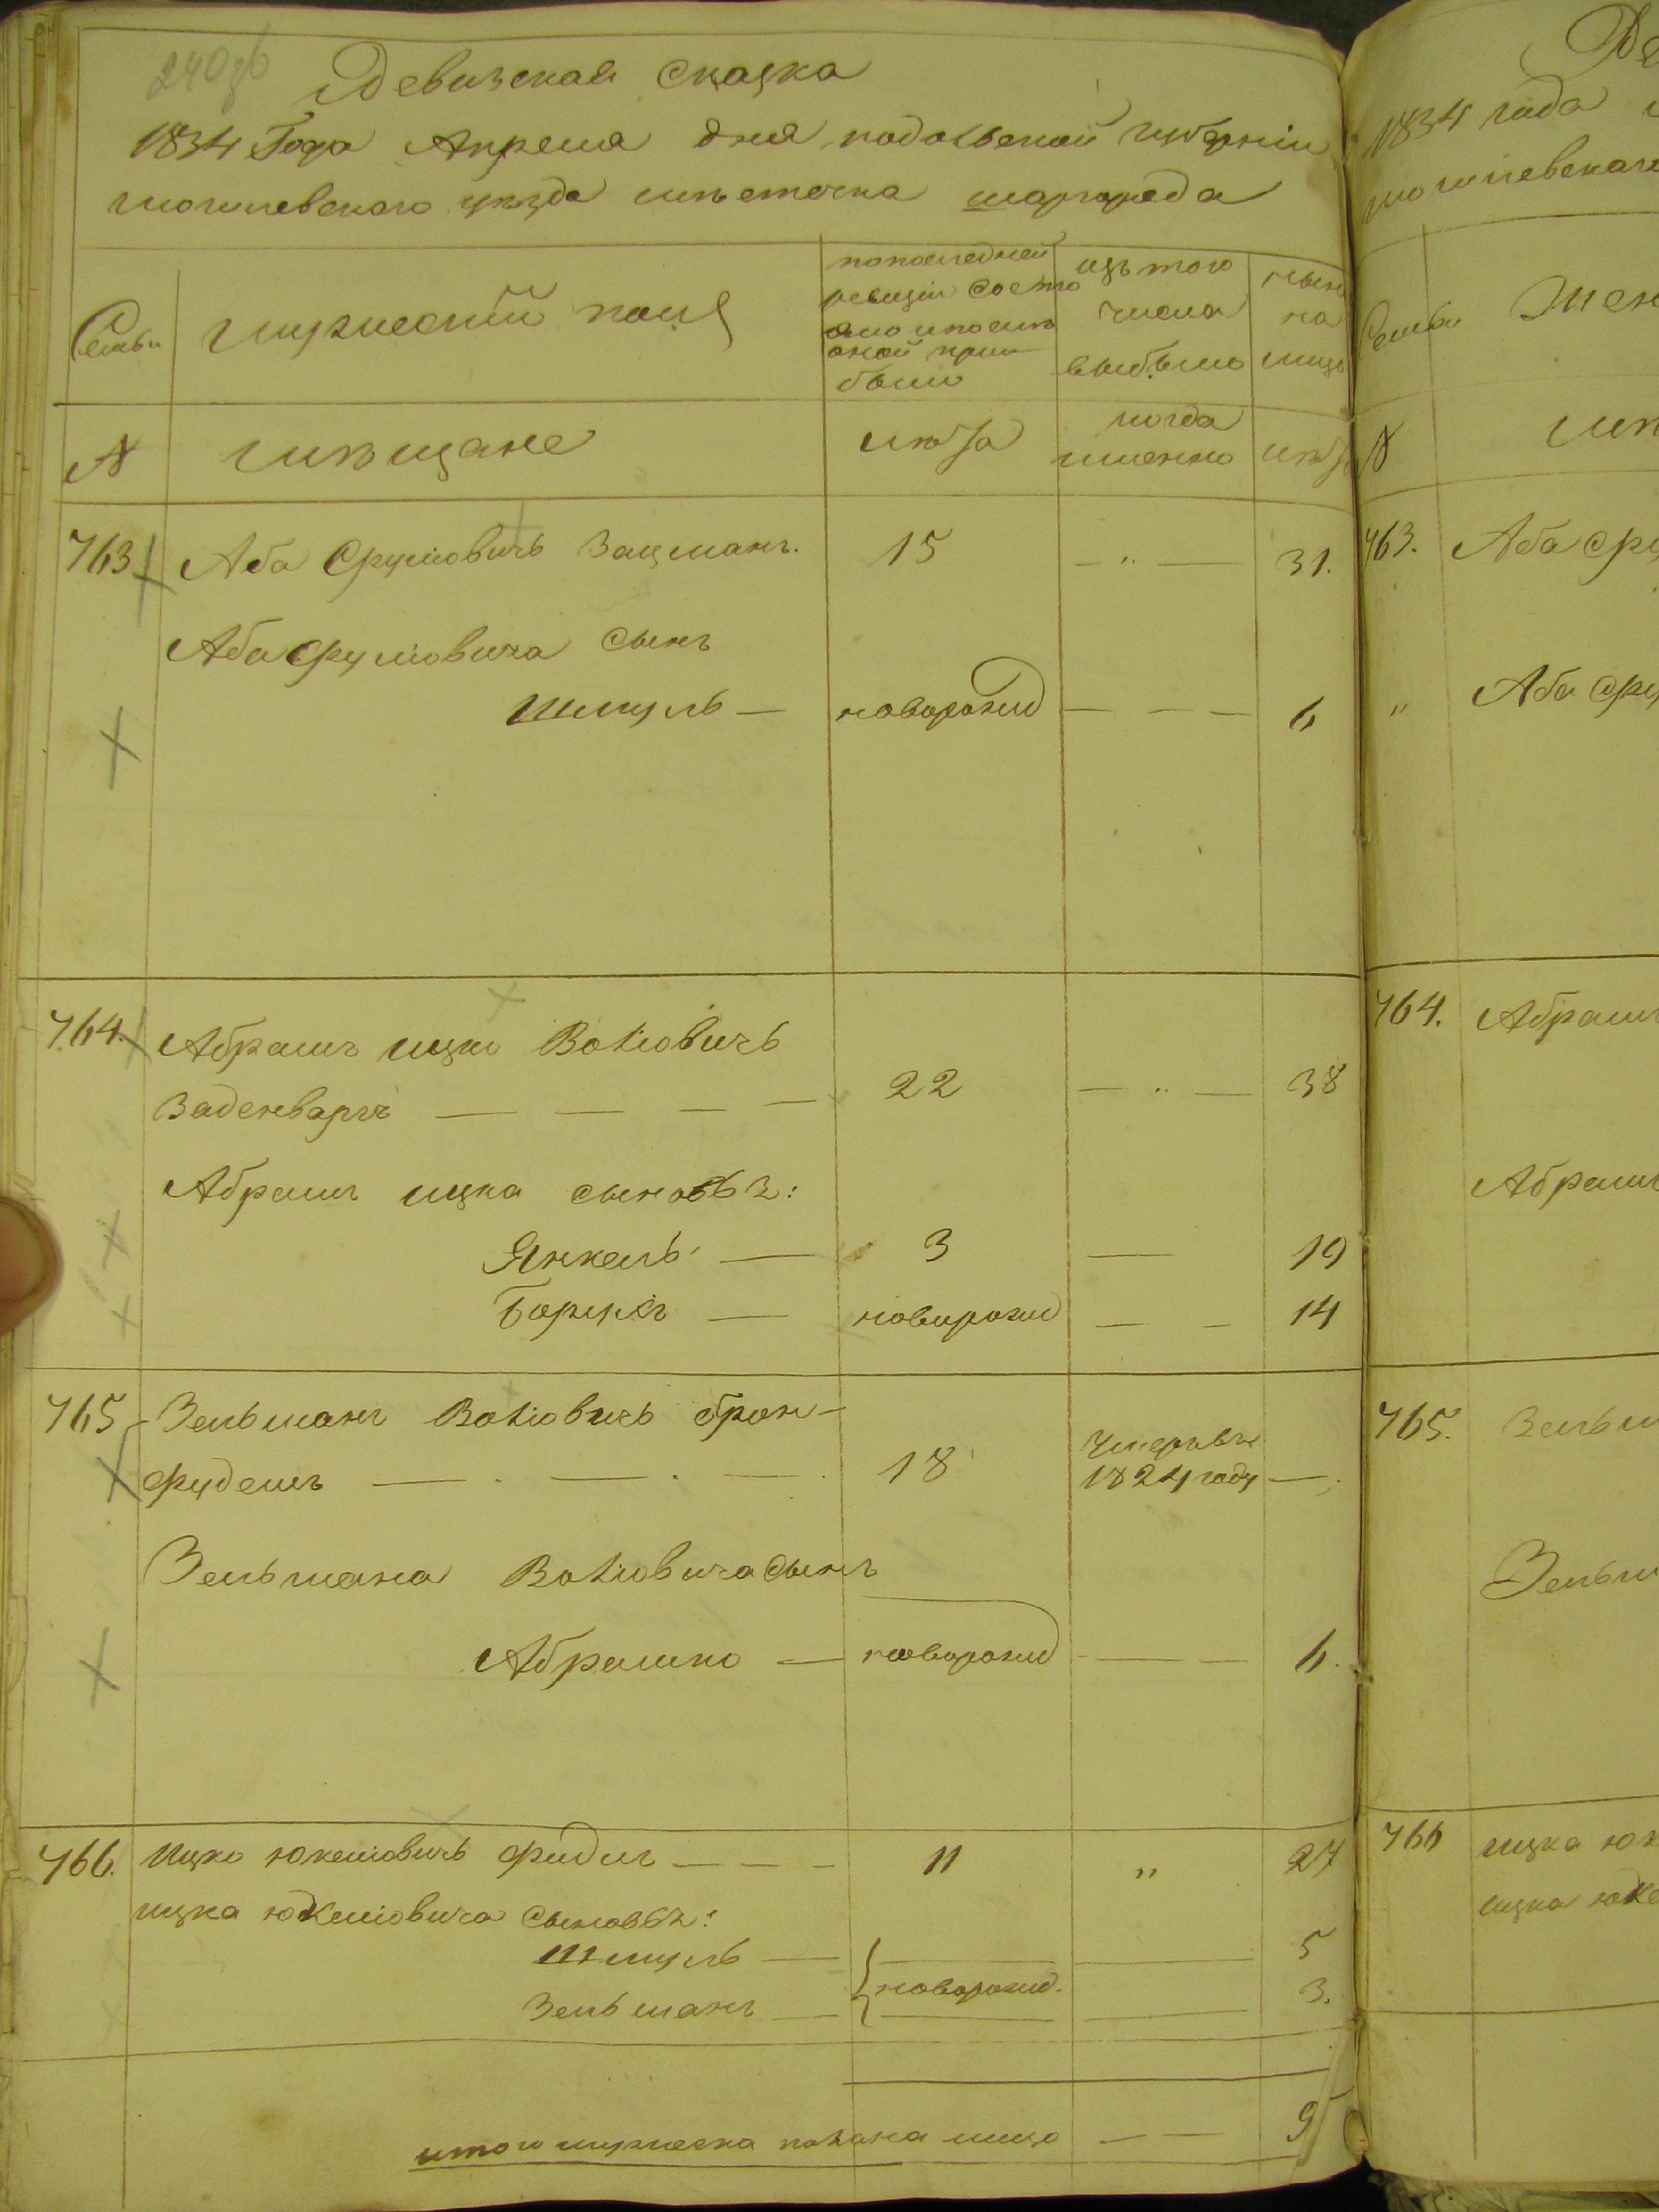 240об
Ревизская сказка
1834 Года Апреля дня подольской губерніи
могилевского уѣзда мѣстечка шаргорода
Семьи
мужеской полъ
попоследней
ревизіи состо
яло и после
оной при
было
изъ того
числа
выбыло
ныне
на
лицо
N
мѣщане
лѣта
когда
именно
лѣта
763
Аба Срулiовичь Зацманъ.
15
31.
Аба Срулiовича Сынъ
Шмуль
новорожд
6
764.
Абрамъ ицко Волiовичь
Заденваргъ
22
38
Абрамъ ицка сыновья:
Янкель
3
19
Борухъ
новорожд
14
765
Зельманъ Волiовичь брон-
фудемъ
18
Умеръ въ
1824 году
Зельмана Волiовича Сынъ
Абрамко
новорожд
6.
766.
Ицко юкелiовичь фидлъ
11
27
ицка юкелiовича Сыновья:
Шмуль
5
новорожд.
Зельманъ
3.
итого мужеска пола на лицо
9
1834 года
могилевскаго
Семьи
Жен
N
763.
Аба Сру
Аба Сру
764.
Абрамъ
Абрамъ
765.
Зельм
Зельм
766
ицка юк
ицка юке